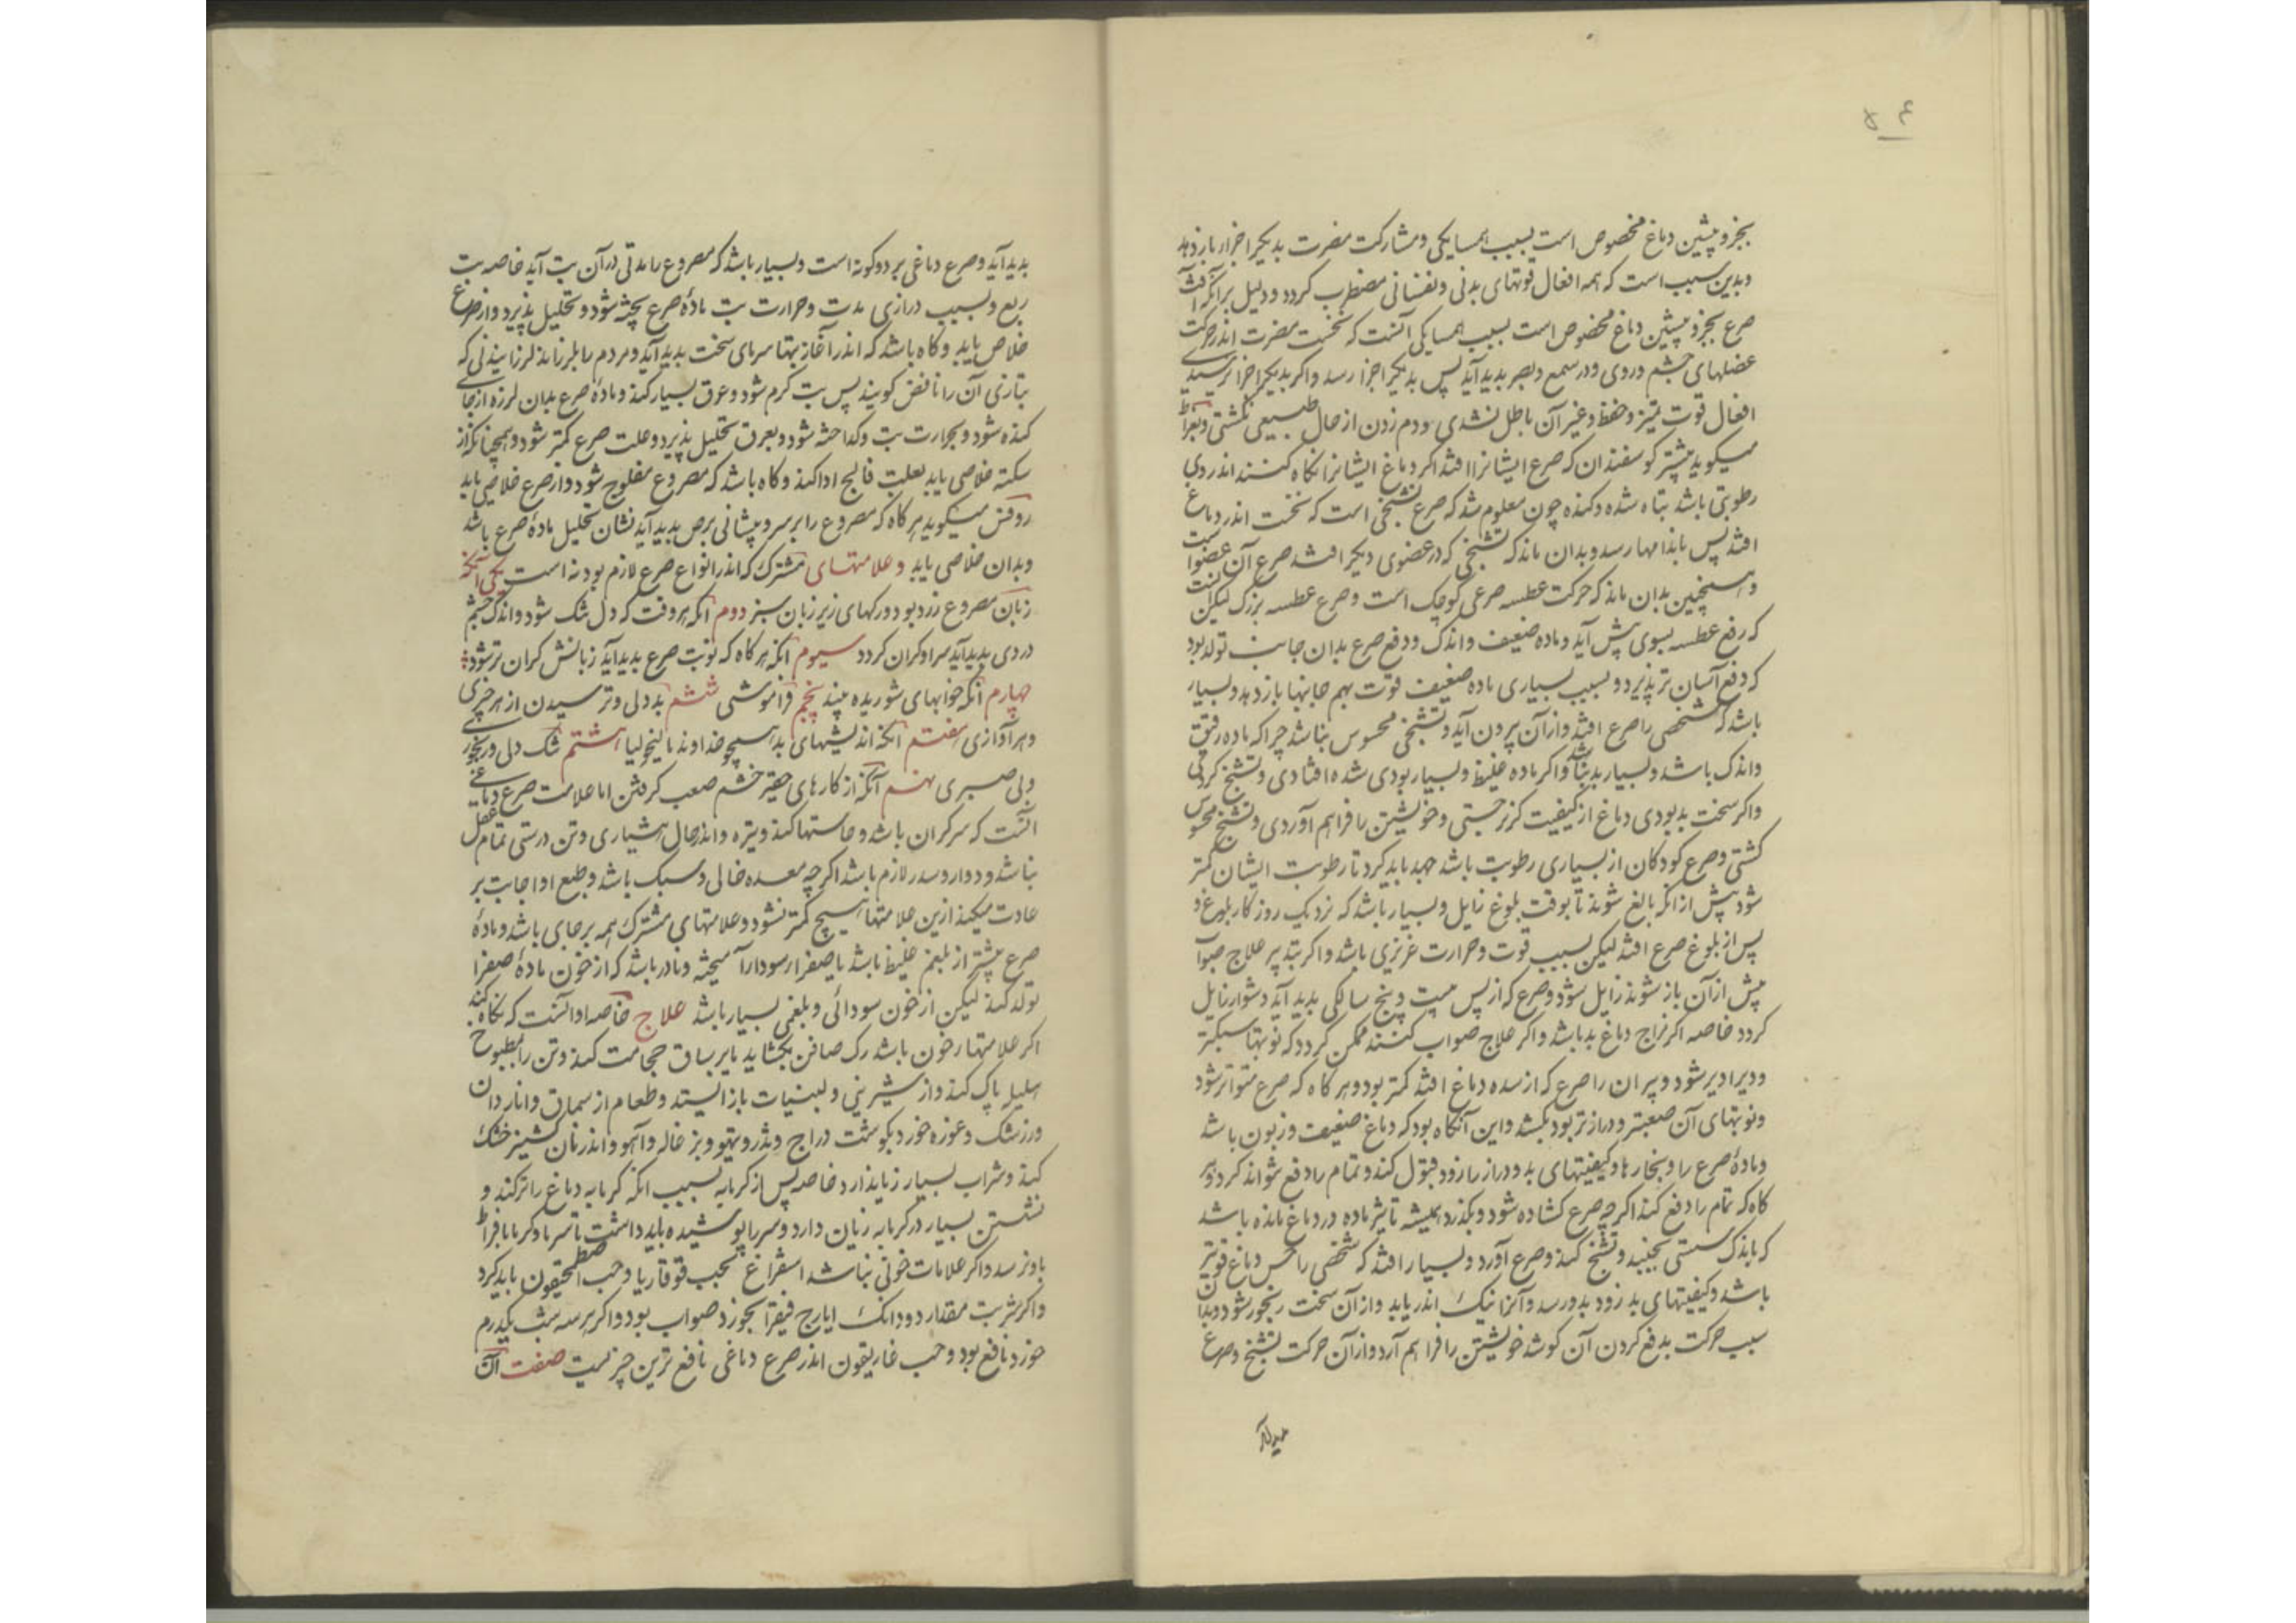 بجزو پیشین دماغ مخصوص است بسبب همسایکی ومشارکت مضرت بدیکر اجزا باز دهد
وبدین سبب است که همه افعال قوتهای بدنی ونفسانی مضطرب کردد ودلیل برانکه آفت
صرع بجزو پیشین دماغ مخصوص است بسبب همسایکی آنست که نخست مضرت اندر حرکت
عضلهای چشم وروی ودر سمع وبصر بدید آید پس بدیکر اجزا رسد واکر بدیکر اجزا نرسیدی
افعال قوت تمیز وحفظ وغیر آن باطل نشدی ودم زدن از حال طبیعی نکشتی وبقراط
میکوید بیشتر کوسفندان که صرع ایشانرا افتد اکر دماغ ایشانرا نکاه کنند اندر وی
رطوبتی باشد تباه شده وکنده چون معلوم شد که صرع تشنجی است که نخست اندر دماغ
افتد پس باندامها رسد وبدان ماند که تشنجی که در عضوی دیکر افتد صرع آن عضو است
وهمچنین بدان ماند که حرکت عطسه صرعی کوچک است وصرع عطسه بزرک لیکن
که رفع عطسه بسوی پیش آید وماده ضعیف واندک ودفع صرع بدان جانب تواند بود
که دفع آسان تر پذیرد وبسبب بسیاری ماده ضعیف قوت بهم جانبها باز دهد وبسیار
باشد که شخصی را صرع افتد واز آن بیرون آید وتشنجی محسوس نباشد چرا که ماده رقیق
واندک باشد وبسیار بد نباشد واکر ماده غلیظ وبسیار بودی شده افتادی وتشنج کردی
واکر سخت بد بودی دماغ از کیفیت کریز جستی وخویشتن را فراهم آوردی وتشنج محسوس
کشتی وصرع کودکان از بسیاری رطوبت باشد جهد باید کرد تا رطوبت ایشان کمتر
شود پیش از انکه بالغ شوند تا بوقت بلوغ زایل وبسیار باشد که نزدیک روزکار بلوغ و
پس از بلوغ صرع افتد لیکن بسبب قوت وحرارت غریزی باشد واکر بتدبیر علاج صواب
پیش از آن باز شوند زایل شود وصرع که از پس بیست وپنج سالکی بدید آید دشوار زایل
کردد خاصه اکر مزاج دماغ بد باشد واکر علاج صواب کنند ممکن کردد که نوبتها سبکتر
ودیرا دیر شود وپیران را صرع که از سده دماغ افتد کمتر بود وهر کاه که صرع متواتر شود
ونوبتهای آن صعبتر ودرازتر بود بکشد واین آنکاه بود که دماغ ضعیف وزبون باشد
ومادهٔ صرع را وبخارها وکیفیتهای بد ودراز را زود قبول کند وتمام را دفع نتواند کرد وهر
کاه که تمام را دفع کند اکرچه صرع کشاده شود وبکذرد همیشه تاثیر ماده در دماغ مانده باشد
که باندک سستی بجنبد وتشنج کند وصرع آورد وبسیار افتد که شخصی را حس دماغ قوی تر
باشد وکیفیتهای بد زود بدو رسد وآنرا نیک اندر یابد واز آن سخت رنجور شود وبدان
سبب حرکت بدفع کردن آن کوشد خویشتن را فراهم آرد واز آن حرکت تشنج وصرع
بدید آید وصرع دماغی بر دو کونه است وبسیار باشد که مصروع را مدتی در آن تب آید خاصه تب
ربع وبسبب درازی مدت وحرارت تب مادهٔ صرع پخته شود وتحلیل پذیرد واز صرع
خلاص یابد وکاه باشد که اندر آغاز تبها سرمای سخت بدید آید ومردم را بلرزاند لرزانیدنی که
بتازی آن را نافض کویند پس تب کرم شود وعرق بسیار کند ومادهٔ صرع بدان لرزه از جای
کنده شود وبحرارت تب وکداخته شود وبعرق تحلیل پذیرد وعلت صرع کمتر شود وهمچنانکه از
سکته خلاصی یابد بعلت فالج ادا کند وکاه باشد که مصروع مفلوج شود واز صرع خلاصی یابد
روفس میکوید هر کاه که مصروع را بر سر وپیشانی برص بدید آید نشان تحلیل مادهٔ صرع باشد
وبدان خلاصی یابد وعلامتهای مشترک که اندر انواع صرع لازم بود نه است یکی آنکه
زبان مصروع زرد بود ورکهای زیر زبان سبز دوم آنکه هر وقت که دل تنک شود واندک خشم
در وی بدید آید سر او کران کردد سیوم آنکه هر کاه که نوبت صرع بدید آید زبانش کران تر شود
چهارم آنکه خوابهای شوریده بیند پنجم فراموشی ششم بد دلی وترسیدن از هر چیزی
وهر آوازی هفتم آنکه اندیشهای بد همچو خداوند مالیخولیا هشتم تنک دلی ورنجوری
وبی صبری نهم آنکه از کارهای حقیر خشم صعب کرفتن اما علامت صرع دماغی
آنست که سر کران باشد وحاستها کند وتیره واندر حال هشیاری وتن درستی تمام عقل
نباشد ودوار وسدر لازم باشد اکرچه معده خالی وسبک باشد وطبع او اجابت بر
عادت میکند ازین علامتها هیچ کمتر نشود وعلامتهای مشترک همه بر جای باشد ومادهٔ
صرع بیشتر از بلغم غلیظ باشد یا صفرا بر سودا را آمیخته ونادر باشد که از خون مادهٔ صفرا
تولد کند لیکن از خون سودائی وبلغمی بسیار باشد علاج خاصه او آنست که نکاه کند
اکر علامتها خون باشد رک صافن بکشاید یا بر ساق حجامت کند وتن را بمطبوخ
هلیله پاک کند واز شیرینی ولبنیات باز ایستد وطعام از سماق وانار دان
وزرشک وغوره خورد بکوشت دراج وتذرو وتیهو وبزغاله وآهو واندر نان کشنیز خشک
کند وشراب بسیار زیان دارد خاصه پس از کرمابه بسبب انکه کرمابه دماغ را تر کند و
نشستن بسیار در کرمابه زیان دارد وسر را پوشیده باید داشت تا سرما وکرما با فراط
باو نرسد واکر علامات خونی نباشد استفراغ بحب قوقایا وحب اصطمخیقون باید کرد
واکر شربت مقدار دو دانک ایارج فیقرا بخورد صواب بود واکر هر سه شب یکدرم
خورد نافع بود وحب غاریقون اندر صرع دماغی نافع ترین چیزیست صفت آن